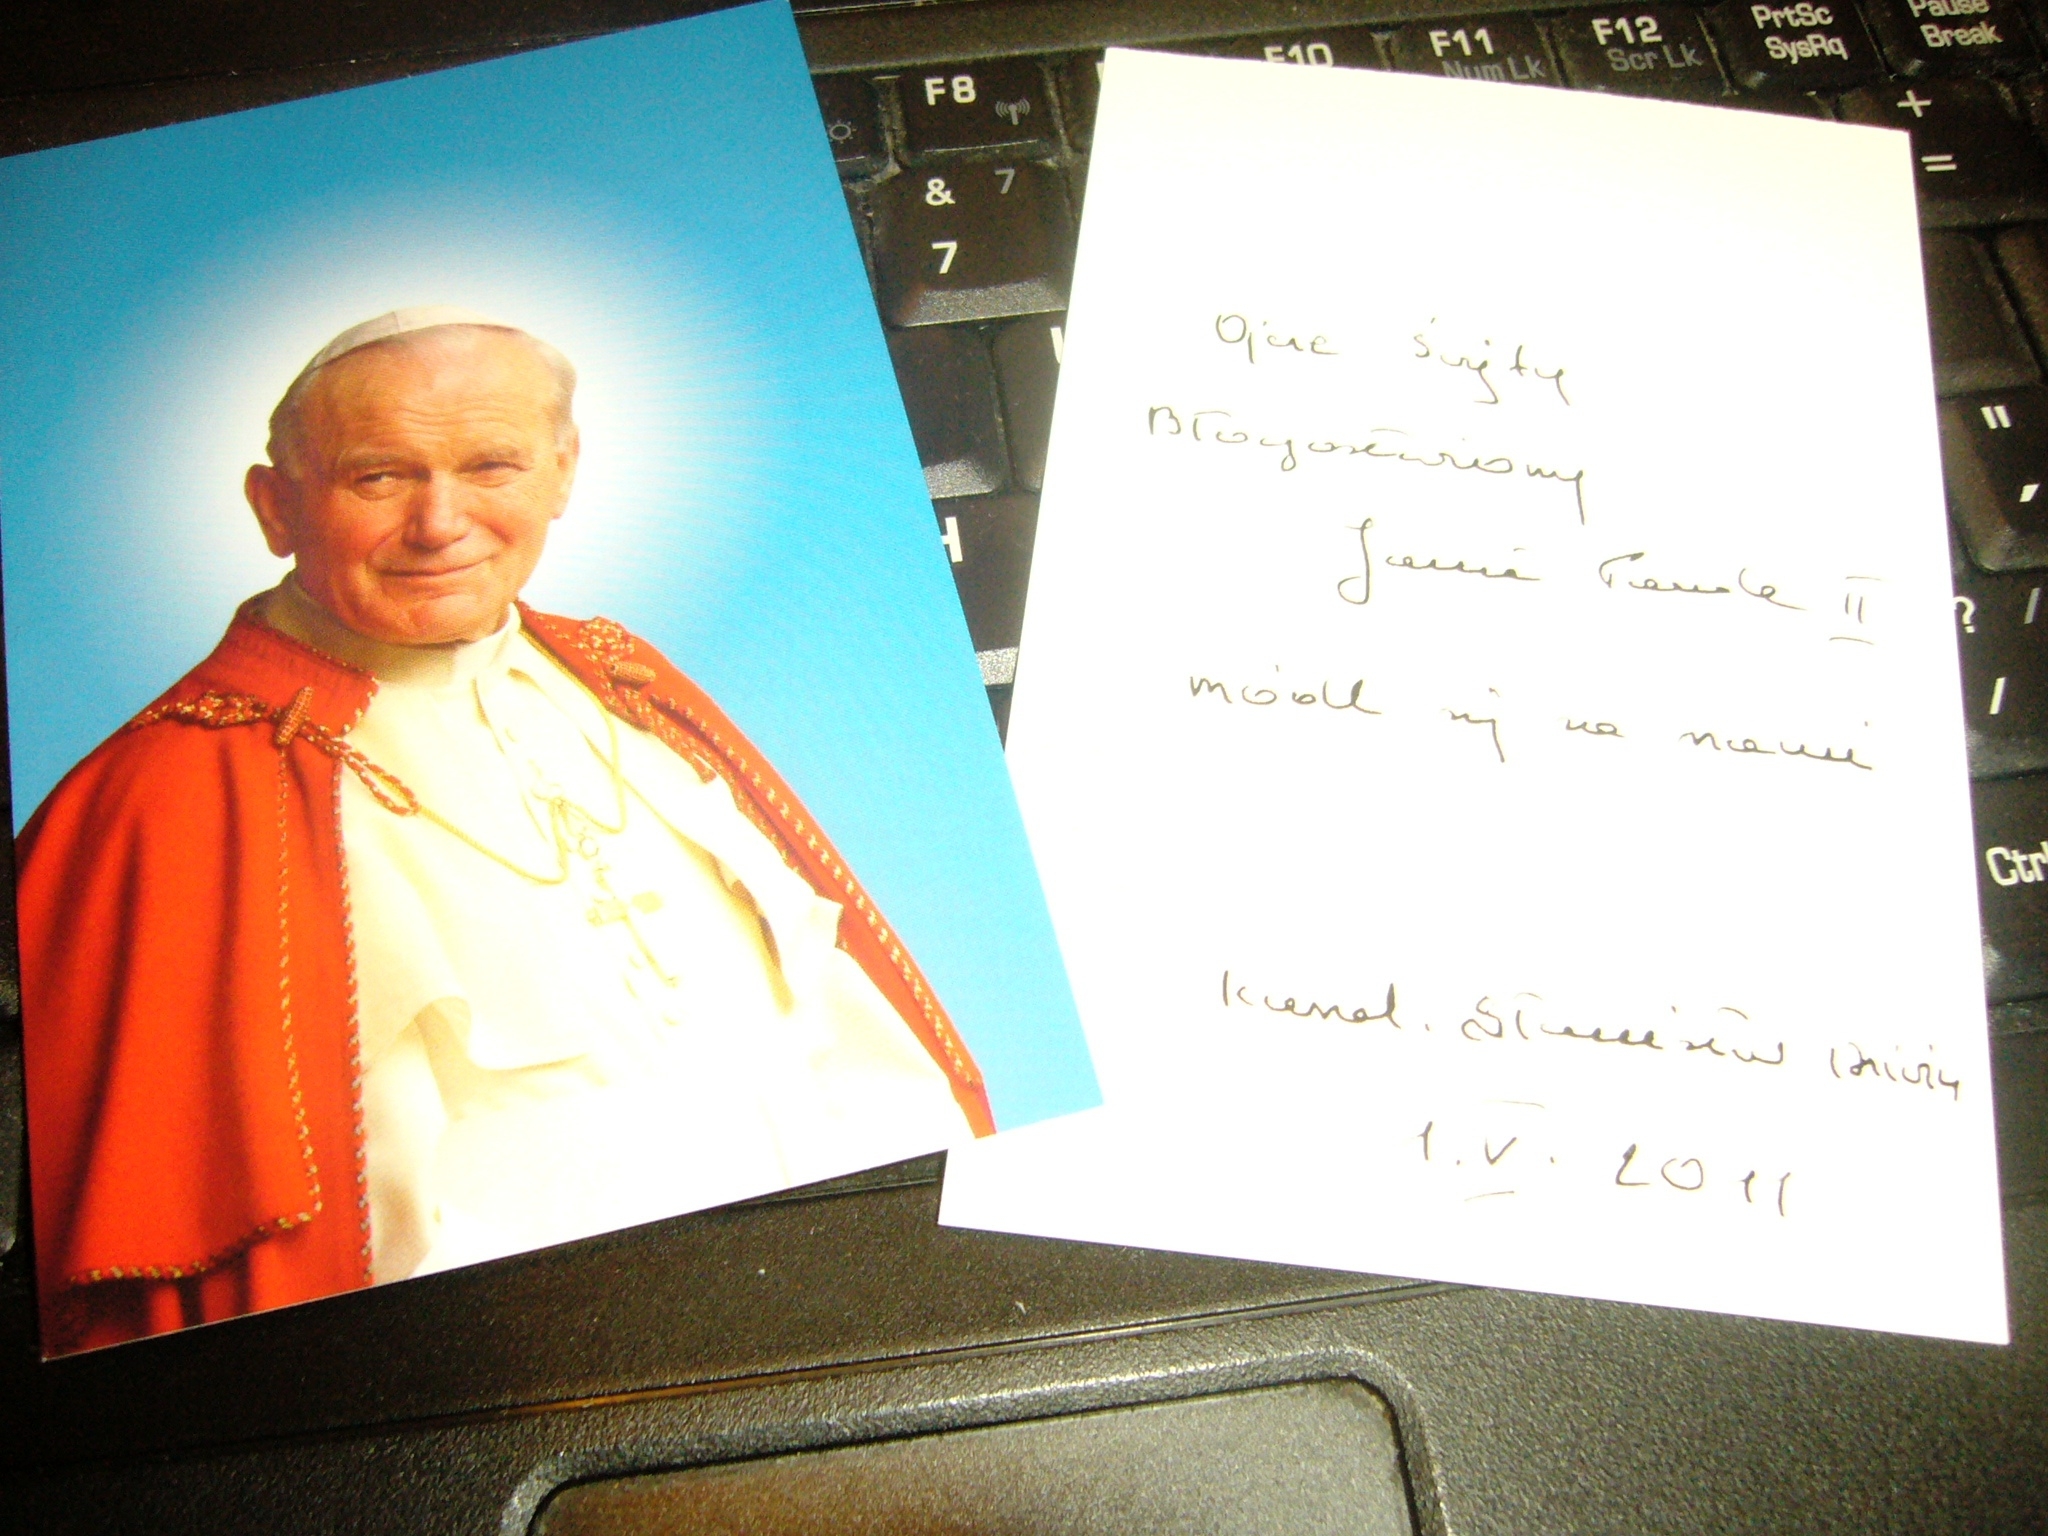 F8
F10
F11
Num Lk
F12
Scr Lk
PrtSc
SysRq
Pause
Break
& 7
7
+
=
H
"
,
? /
/
Ctr
Ojcze Święty
Błogosławiony
Janie Pawle II
módl się za nami
Kard. Stanisław Dziwisz
1. V. 2011